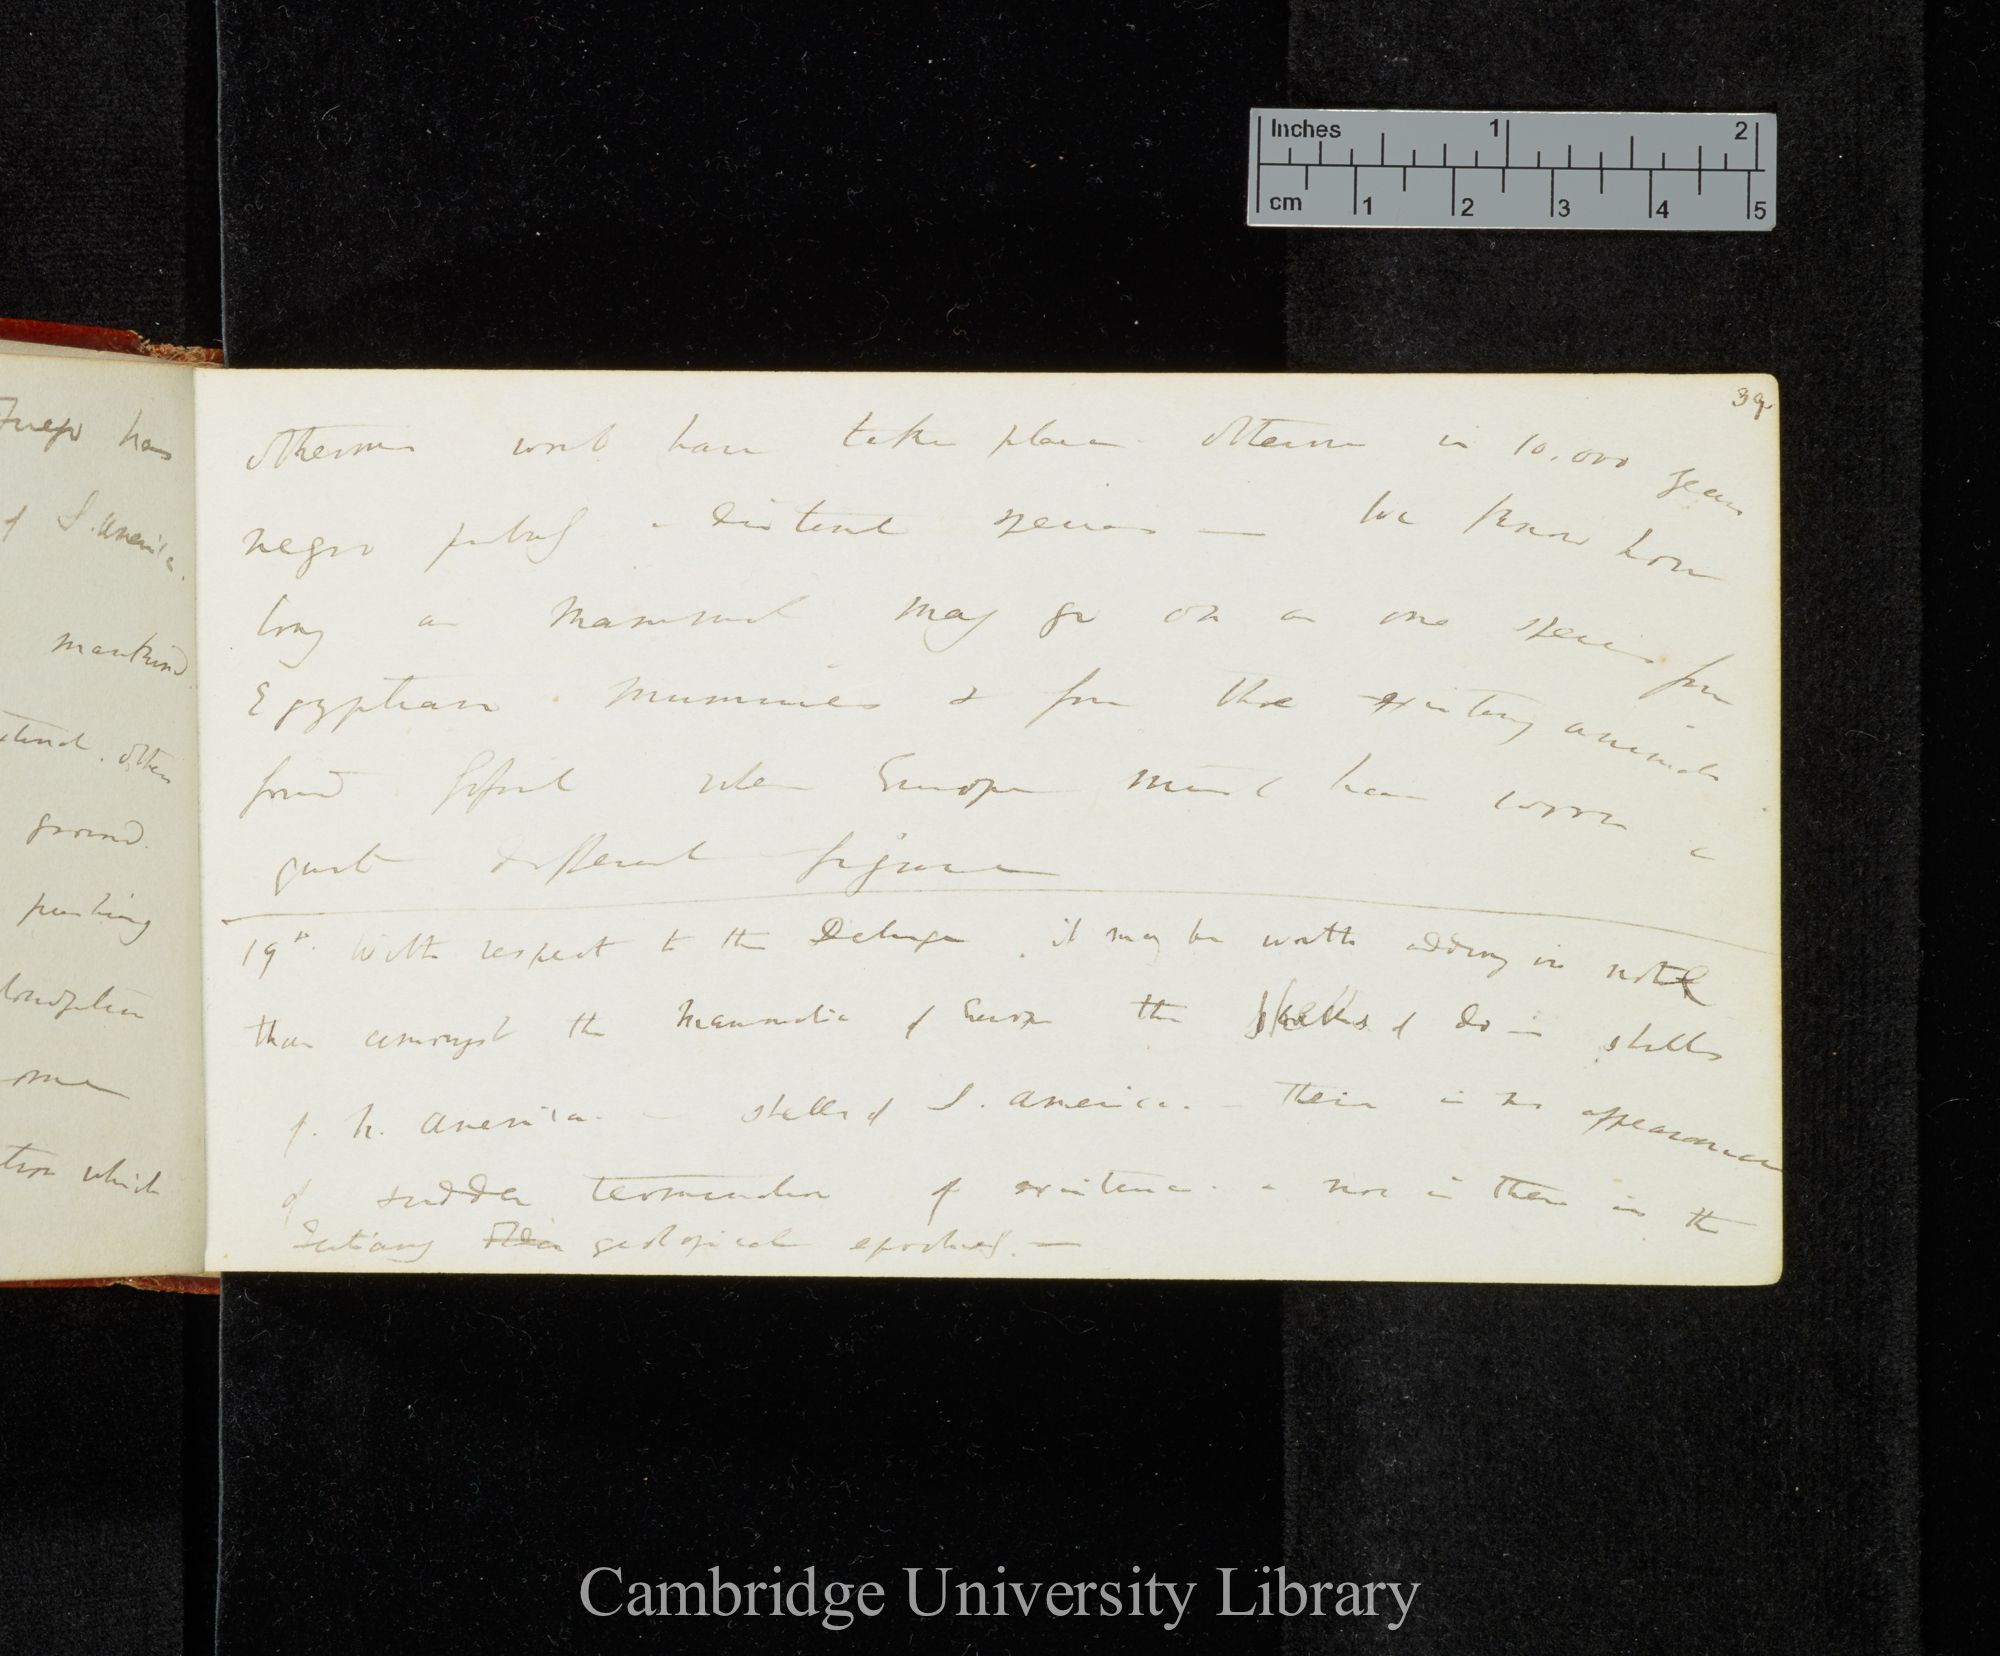 Inches 1 2
cm 1 2 3 4 5
39
otherwise would have taken place. otherwise in 10,000 years
negro probably a distinct species — We know how
long a mammal may go on as one species from
Egyptian mummies & from the existing animals
found fossil when Europe must have worn a
quite different figure
19th. With respect to the Deluge, it may be worth adding in note
that amongst the Mammalia of Europe the shells of do — shells
of N. America. — shells of S. America. — there is no appearance
of sudden termination of existence. — nor is there in the
Tertiary geological epochs. —
Fuego has
of S. America.
mankind
others
ground.
pushing
which
Cambridge University Library